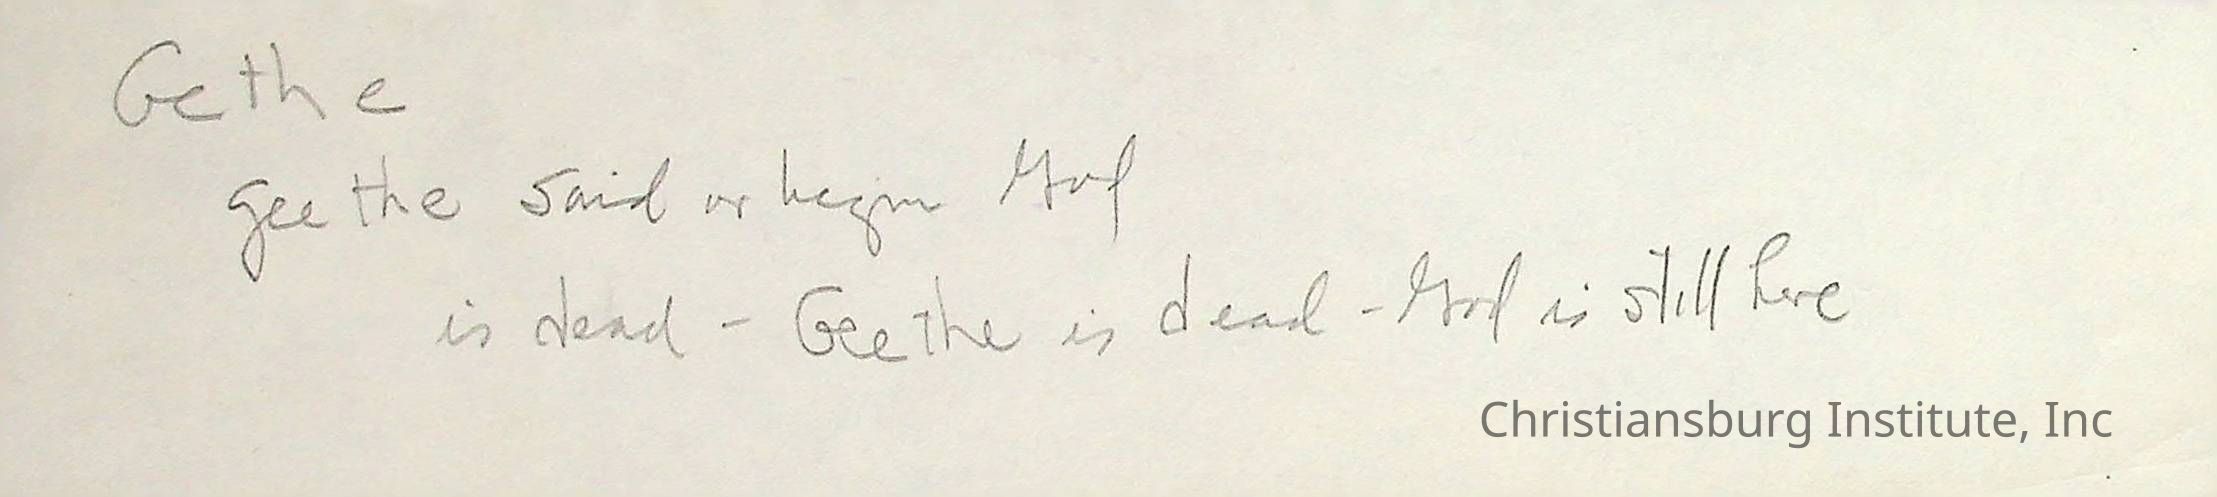 Gethe
geethe said or begin God
is dead - Geethe is dead - God is still here
Christiansburg Institute, Inc